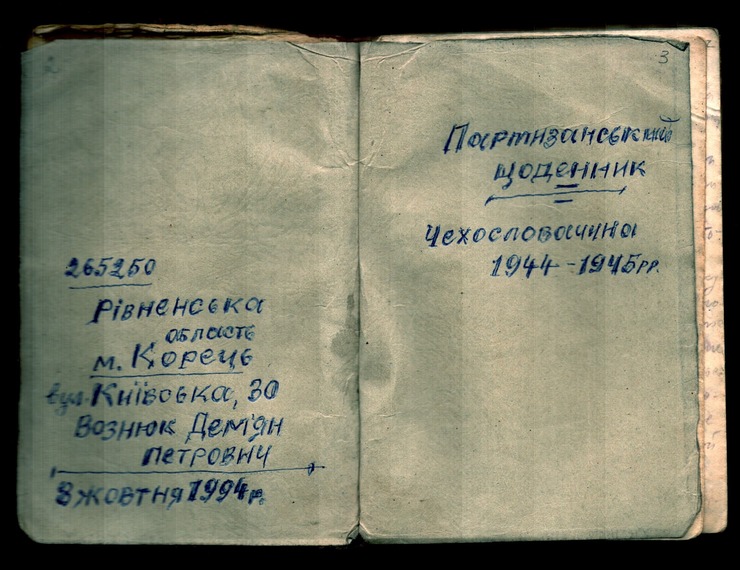 2
265250
Рівненська
область
м. Корець
вул. Київська, 30
Вознюк Дем'ян
Петрович
8 жовтня 1994 р.
3
Партизанський
щоденник
Чехословаччина
1944-1945 рр.